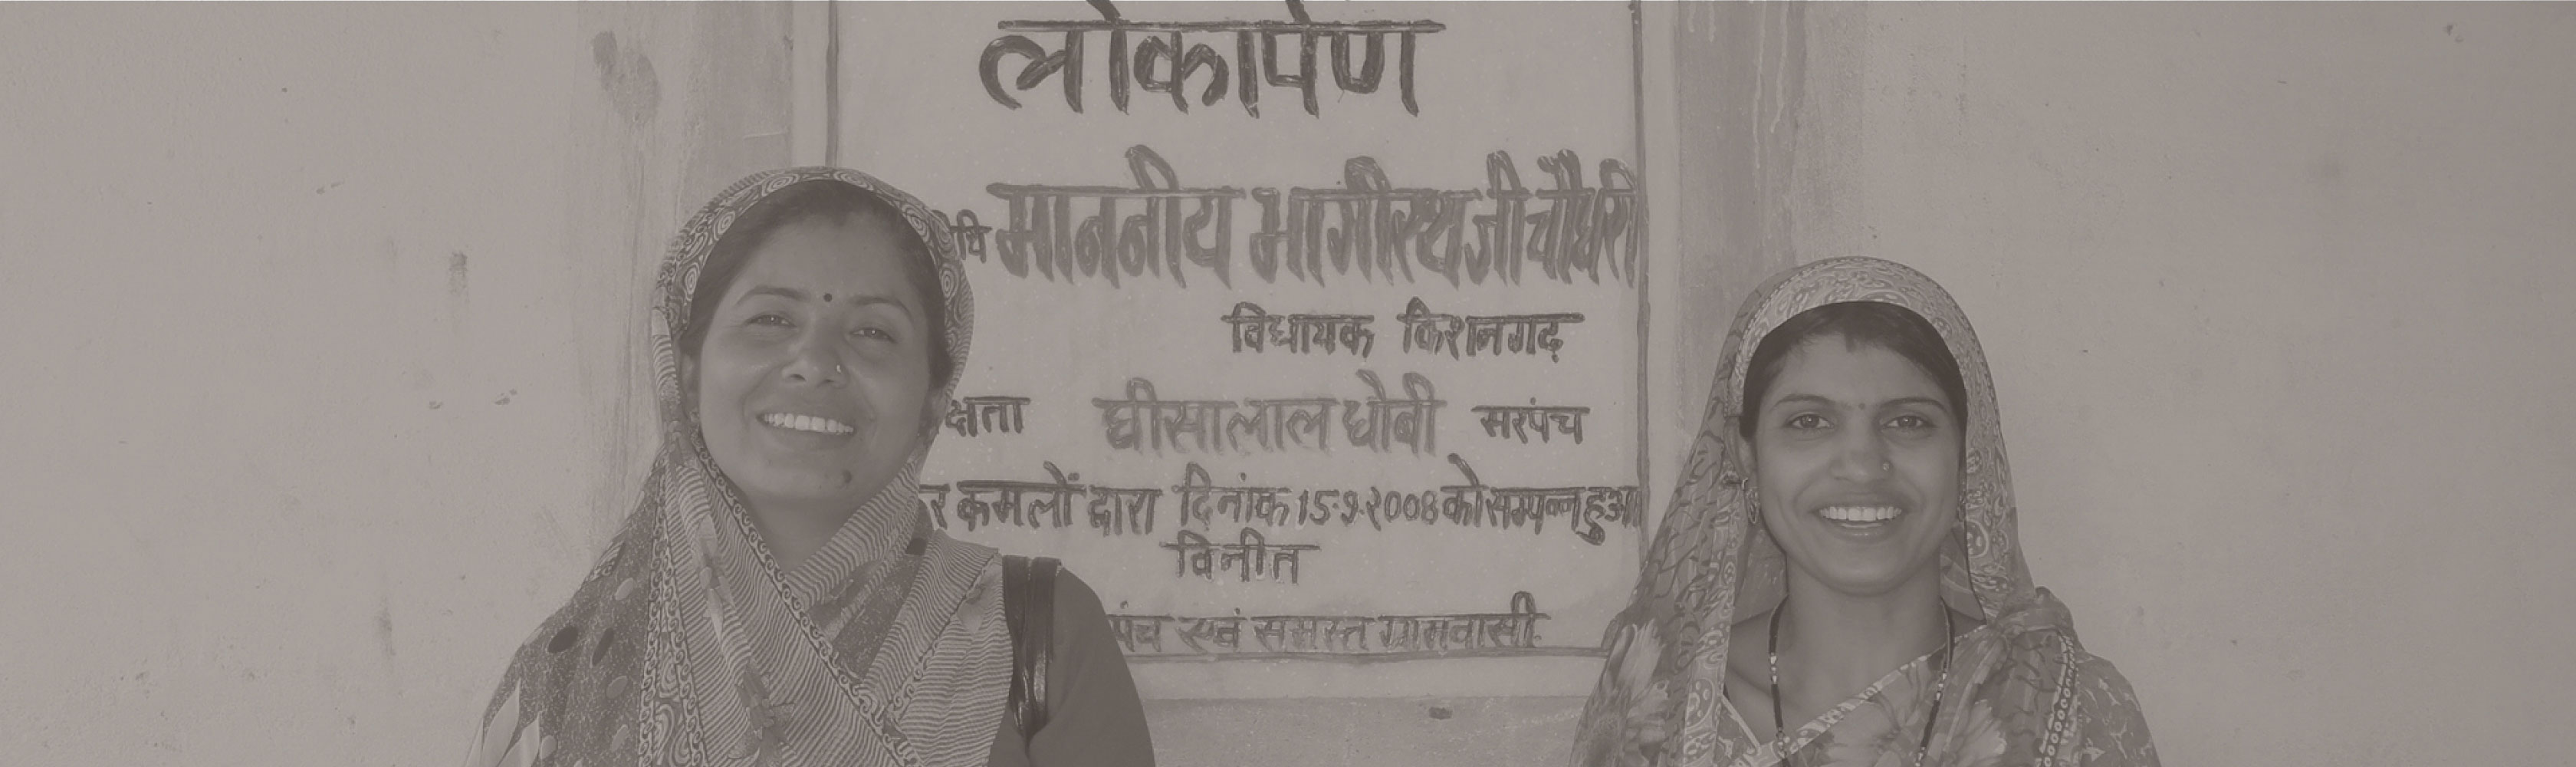 लोकार्पण
माननीय भागीरथ जी चौधरी
विधायक किशनगढ़
क्षता घीसालाल धोबी सरपंच
र कमलों द्वारा दिनांक 15-9-2008 को सम्पन्न हुआ
विनीत
पंच एवं समस्त ग्रामवासी